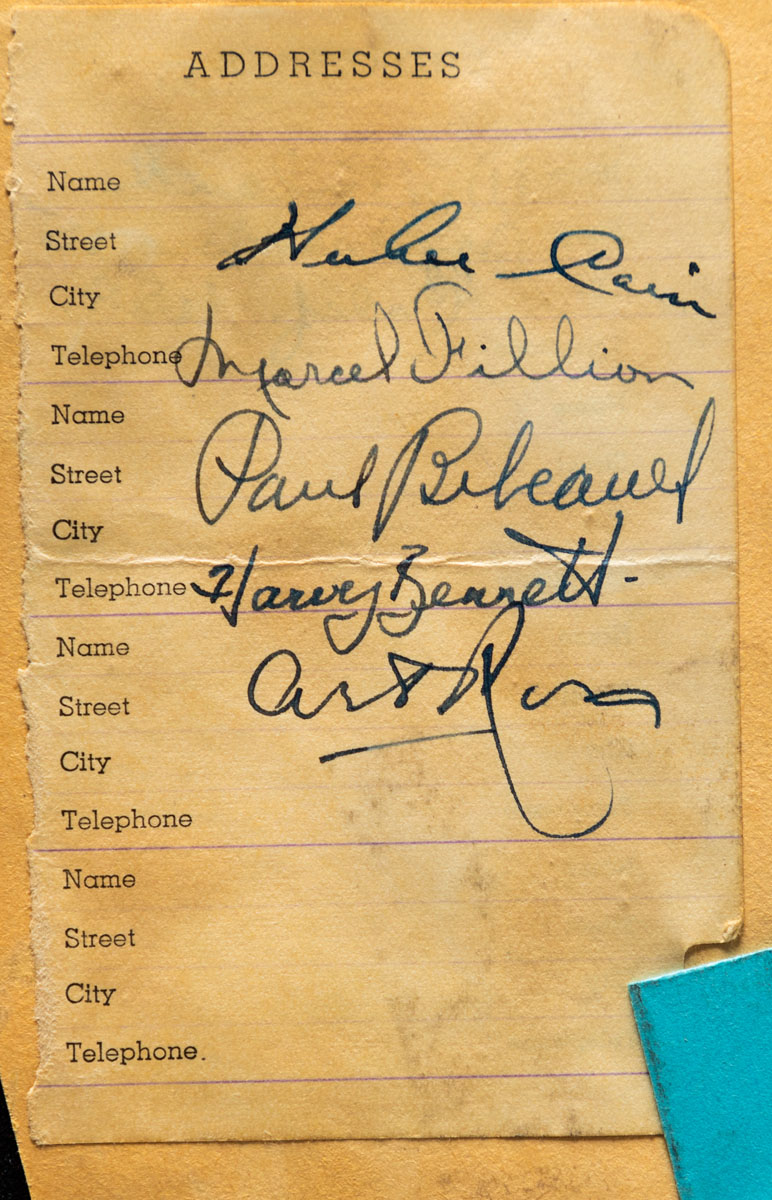 ADDRESSES
Name
Street
Cain
City
Telephone
Marcel Fillion
Name
Street
Paul Bibeault
City
Telephone
Harvey Bennett.
Name
Street
Art Ross
City
Telephone
Name
Street
City
Telephone.